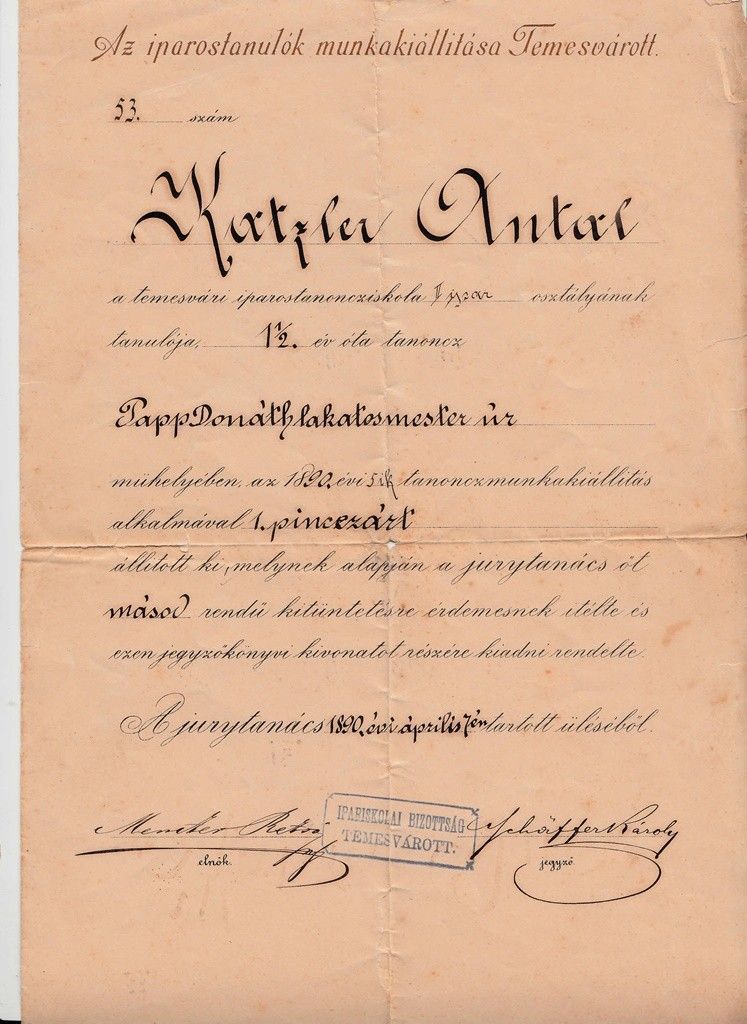 Az iparostanulók munkakiállitása Temesvárott.
53. szám
Katzler Antal
a temesvári iparostanoncziskola II ipar osztályának
tanulója, 1 1/2. év óta tanoncz
Papp Donáth lakatosmester úr
műhelyében, az 1890. évi tanonczmunkakiállitás
alkalmával 1. pinczezárt
állitott ki, melynek alapján a jurytanács őt
másod rendű kitüntetésre érdemesnek itélte és
ezen jegyzőkönyvi kivonatot részére kiadni rendelte.
A jurytanács 1890. évi április 7én tartott üléséből.
IPARISKOLAI BIZOTTSÁG
TEMESVÁROTT.
Schäffer Károly
elnök.
jegyző